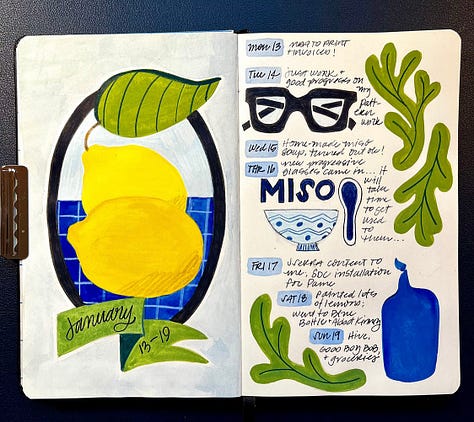 January
13-19
MON 13 map to print
+ invoices!
TUE 14 just work +
good progress on
my
patt-
ern
work
Wed 15 Home-made miso
soup, turned out ok!
THR 16 new progressive
glasses came in... it
will
take
time
to get
used
to
them...
MISO
FRI 17 content to
me, installation
for
SAT 18 Painted lots
of lemons;
went to Blue
Bottle + Abbot Kinney
SUN 19 Hike,
good
+ groceries!